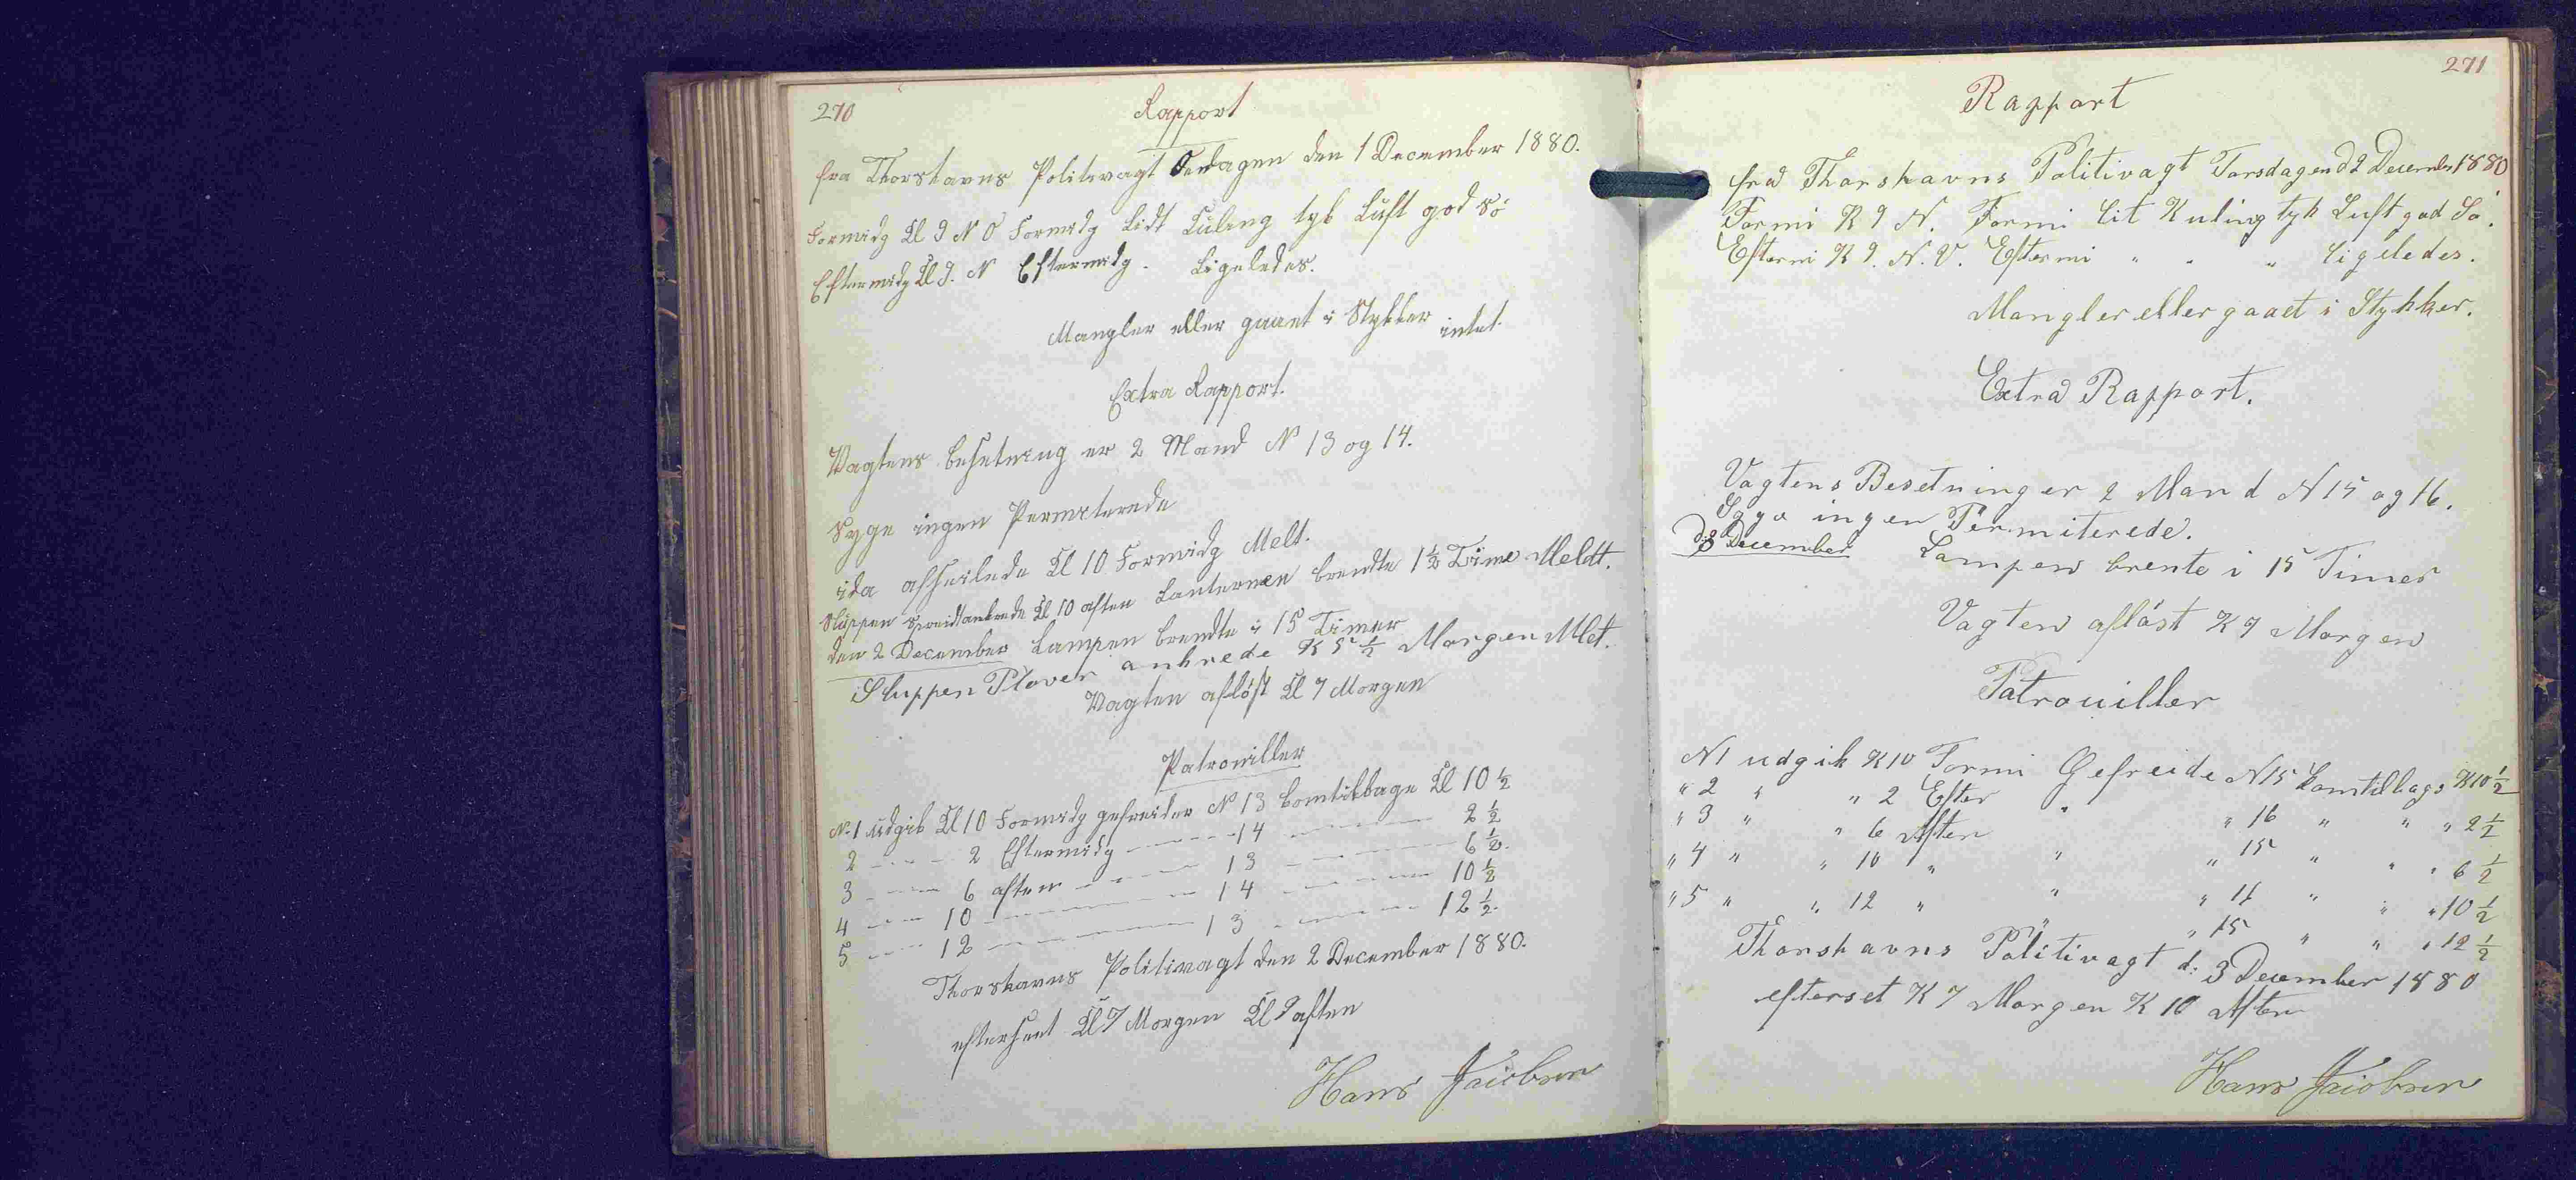 270
Rapport
fra Thorshavns Politivagt Onsdagen den 1 December 1880.
Formidg Kl 9 N O Formidg Lidt Kuling tyk Luft god Sö
Eftermidg Kl 9. N Eftermidg. Ligeledes.
Mangler eller gaaet i Stykker intet.
Extra Rapport.
Vagtens besetning er 2 Mand N 13 og 14.
Syge ingen Permiterede
ida afseilede Kl 10 Formidg Melt.
Sluppen ankrede Kl 10 aften Lanternen brendte 1½ Time Meldt.
den 2 December Lampen brendte i 15 Timer
Sluppen Plover ankrede K 5½ Morgen Mlet.
Vagten aflöst Kl 7 Morgen
Patrouiller
N. 1 udgik Kl 10 Formidg gefreider N 13 komtilbage Kl 10½
2 - - - 2 Eftermidg - - - 14 - - - 2½
3 - - - 6 aften - - - 13 - - - 6½.
4 - - - 10 - - - 14 - - - 10½
5 - - - 12 - - - 13 - - - 12½.
Thorshavns Politivagt den 2 December 1880.
efterseet Kl 7 Morgen Kl 9 aften
Hans Jacobsen
271
Rapport
fra Thorshavns Politivagt Torsdagen d 2 December 1880
Formi K 9 N. Formi Lit Kuling tyk Luft god Sö.
Eftermi K 9. N. V. Eftermi " " " ligeledes.
Mangler eller gaaet i Stykker.
Extra Rapport.
Vagtens Besetning er 2 Mand N 15 og 16.
Syge ingen Permiterede.
d: 3 December Lampen brente i 15 Timer
Vagten aflöst K 7 Morgen
Patrouiller
N1 udgik K 10 Formi Gefreide N 15 komtilbage K 10½
" 2 " " 2 Efter " " 16 " " " 2½
" 3 " " 6 Aften " " 15 " " " 6½
" 4 " " 10 " " " 16 " " " 10½
" 5 " " 12 " " " 15 " " " 12½
Thorshavns Politivagt d: 3 December 1880
efterset K 7 Morgen K 10 Aften
Hans Jacobsen